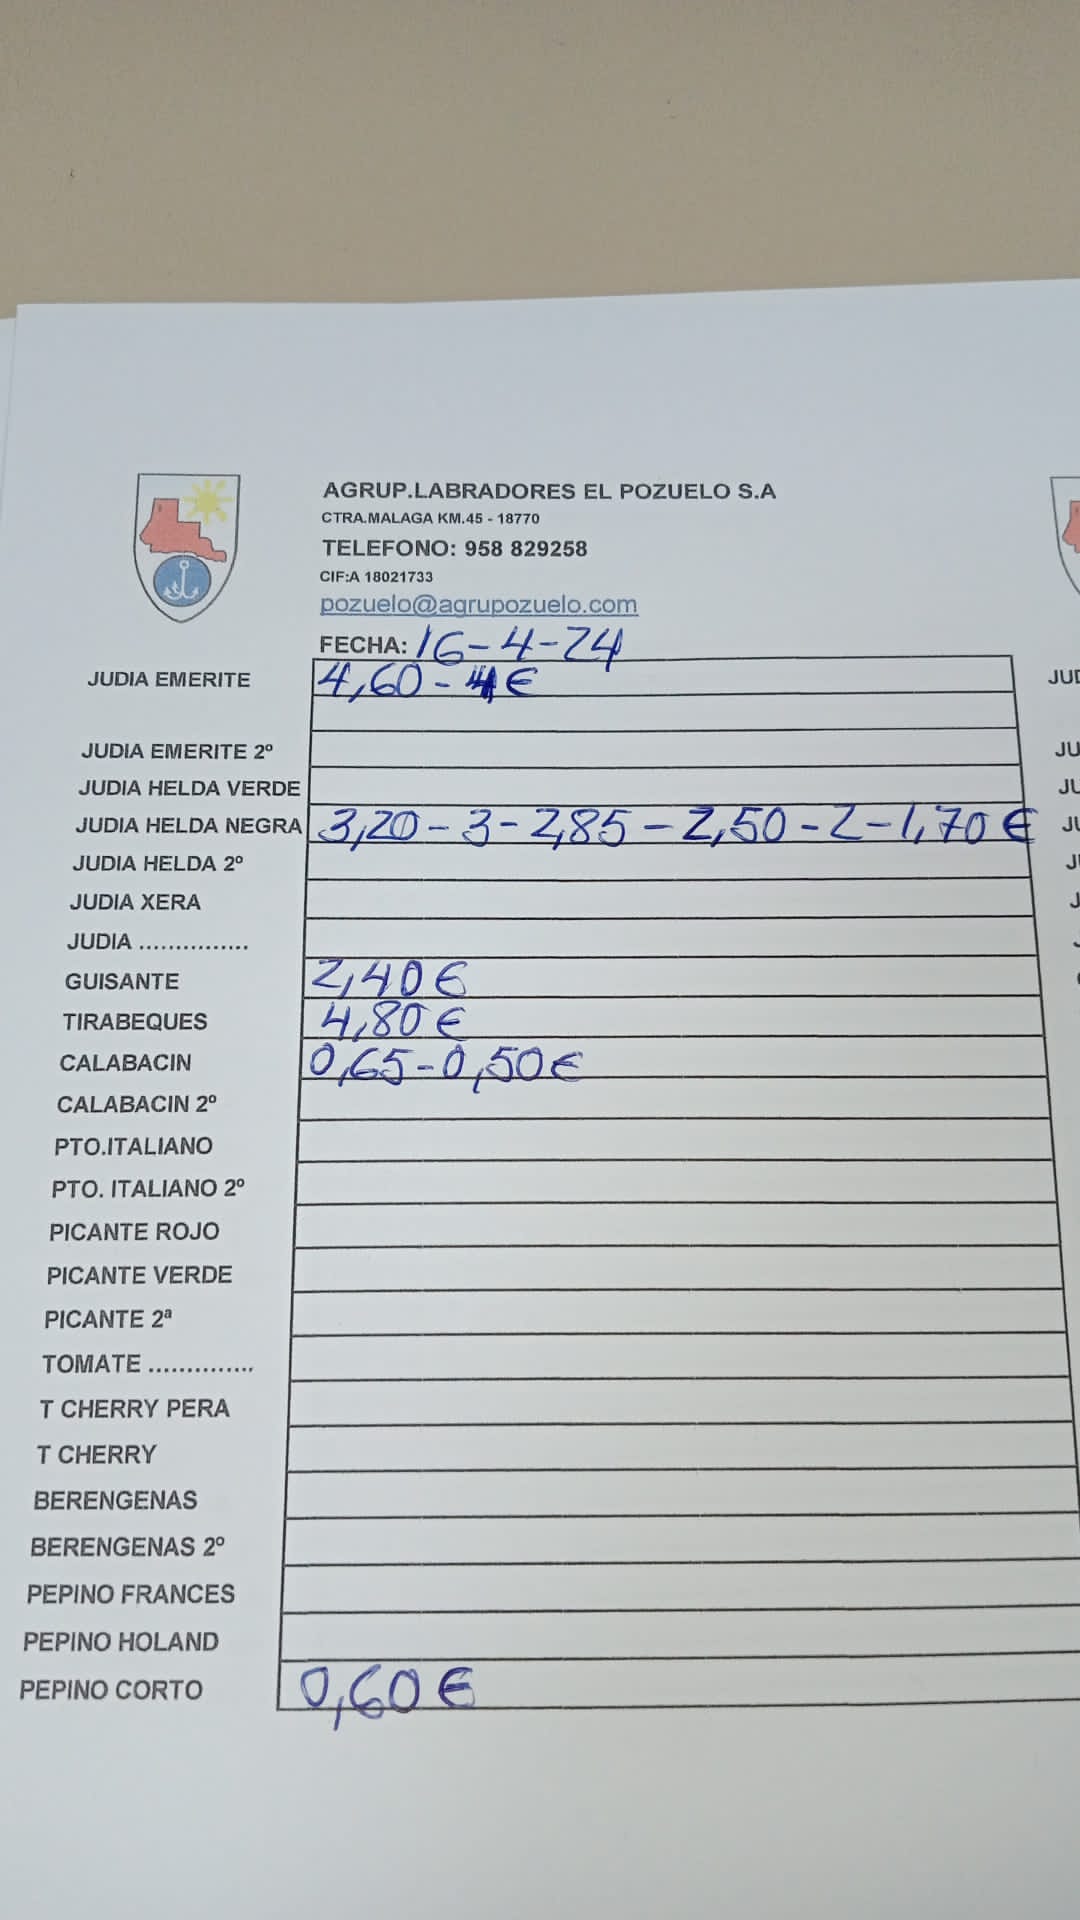 AGRUP.LABRADORES EL POZUELO S.A
CTRA.MALAGA KM.45 - 18770
TELEFONO: 958 829258
CIF:A 18021733
pozuelo@agrupozuelo.com
FECHA: 16-4-24
JUDIA EMERITE 4,60 - 4 €
JUDIA EMERITE 2º
JUDIA HELDA VERDE
JUDIA HELDA NEGRA 3,20 - 3 - 2,85 - 2,50 - 2 - 1,70 €
JUDIA HELDA 2º
JUDIA XERA
JUDIA ...............
GUISANTE 2,40 €
TIRABEQUES 4,80 €
CALABACIN 0,65 - 0,50 €
CALABACIN 2º
PTO.ITALIANO
PTO. ITALIANO 2º
PICANTE ROJO
PICANTE VERDE
PICANTE 2ª
TOMATE ..............
T CHERRY PERA
T CHERRY
BERENGENAS
BERENGENAS 2º
PEPINO FRANCES
PEPINO HOLAND
PEPINO CORTO 0,60 €